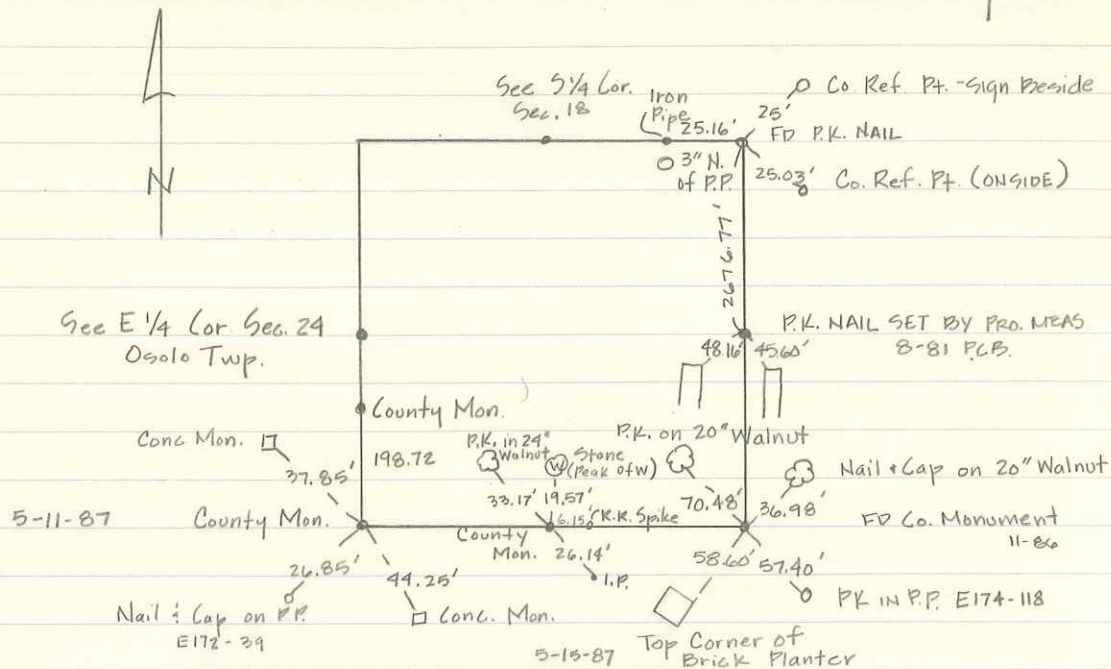 See S 1/4 Cor.
Sec. 18
Iron
Pipe
25.16'
25'
Co. Ref. Pt. - Sign Beside
FD P.K. NAIL
3" N.
of P.P.
25.03'
Co. Ref. Pt. (ONSIDE)
N
2676.77'
See E 1/4 Cor. Sec. 24
Osolo Twp.
P.K. NAIL SET BY PRO. MEAS
8-81 P.C.B.
48.16'
45.60'
County Mon.
Conc Mon.
198.72
P.K. in 24"
Walnut
Stone
(Peak of W)
W
P.K. on 20" Walnut
Nail & Cap on 20" Walnut
37.85'
33.17'
19.57'
70.48'
36.98'
5-11-87
County Mon.
6.15'
R.R. Spike
FD Co. Monument
11-86
County
Mon.
26.14'
I.P.
26.85'
44.25'
58.60'
57.40'
Nail & Cap on P.P.
E172-39
Conc. Mon.
PK IN P.P. E174-118
5-15-87
Top Corner of
Brick Planter